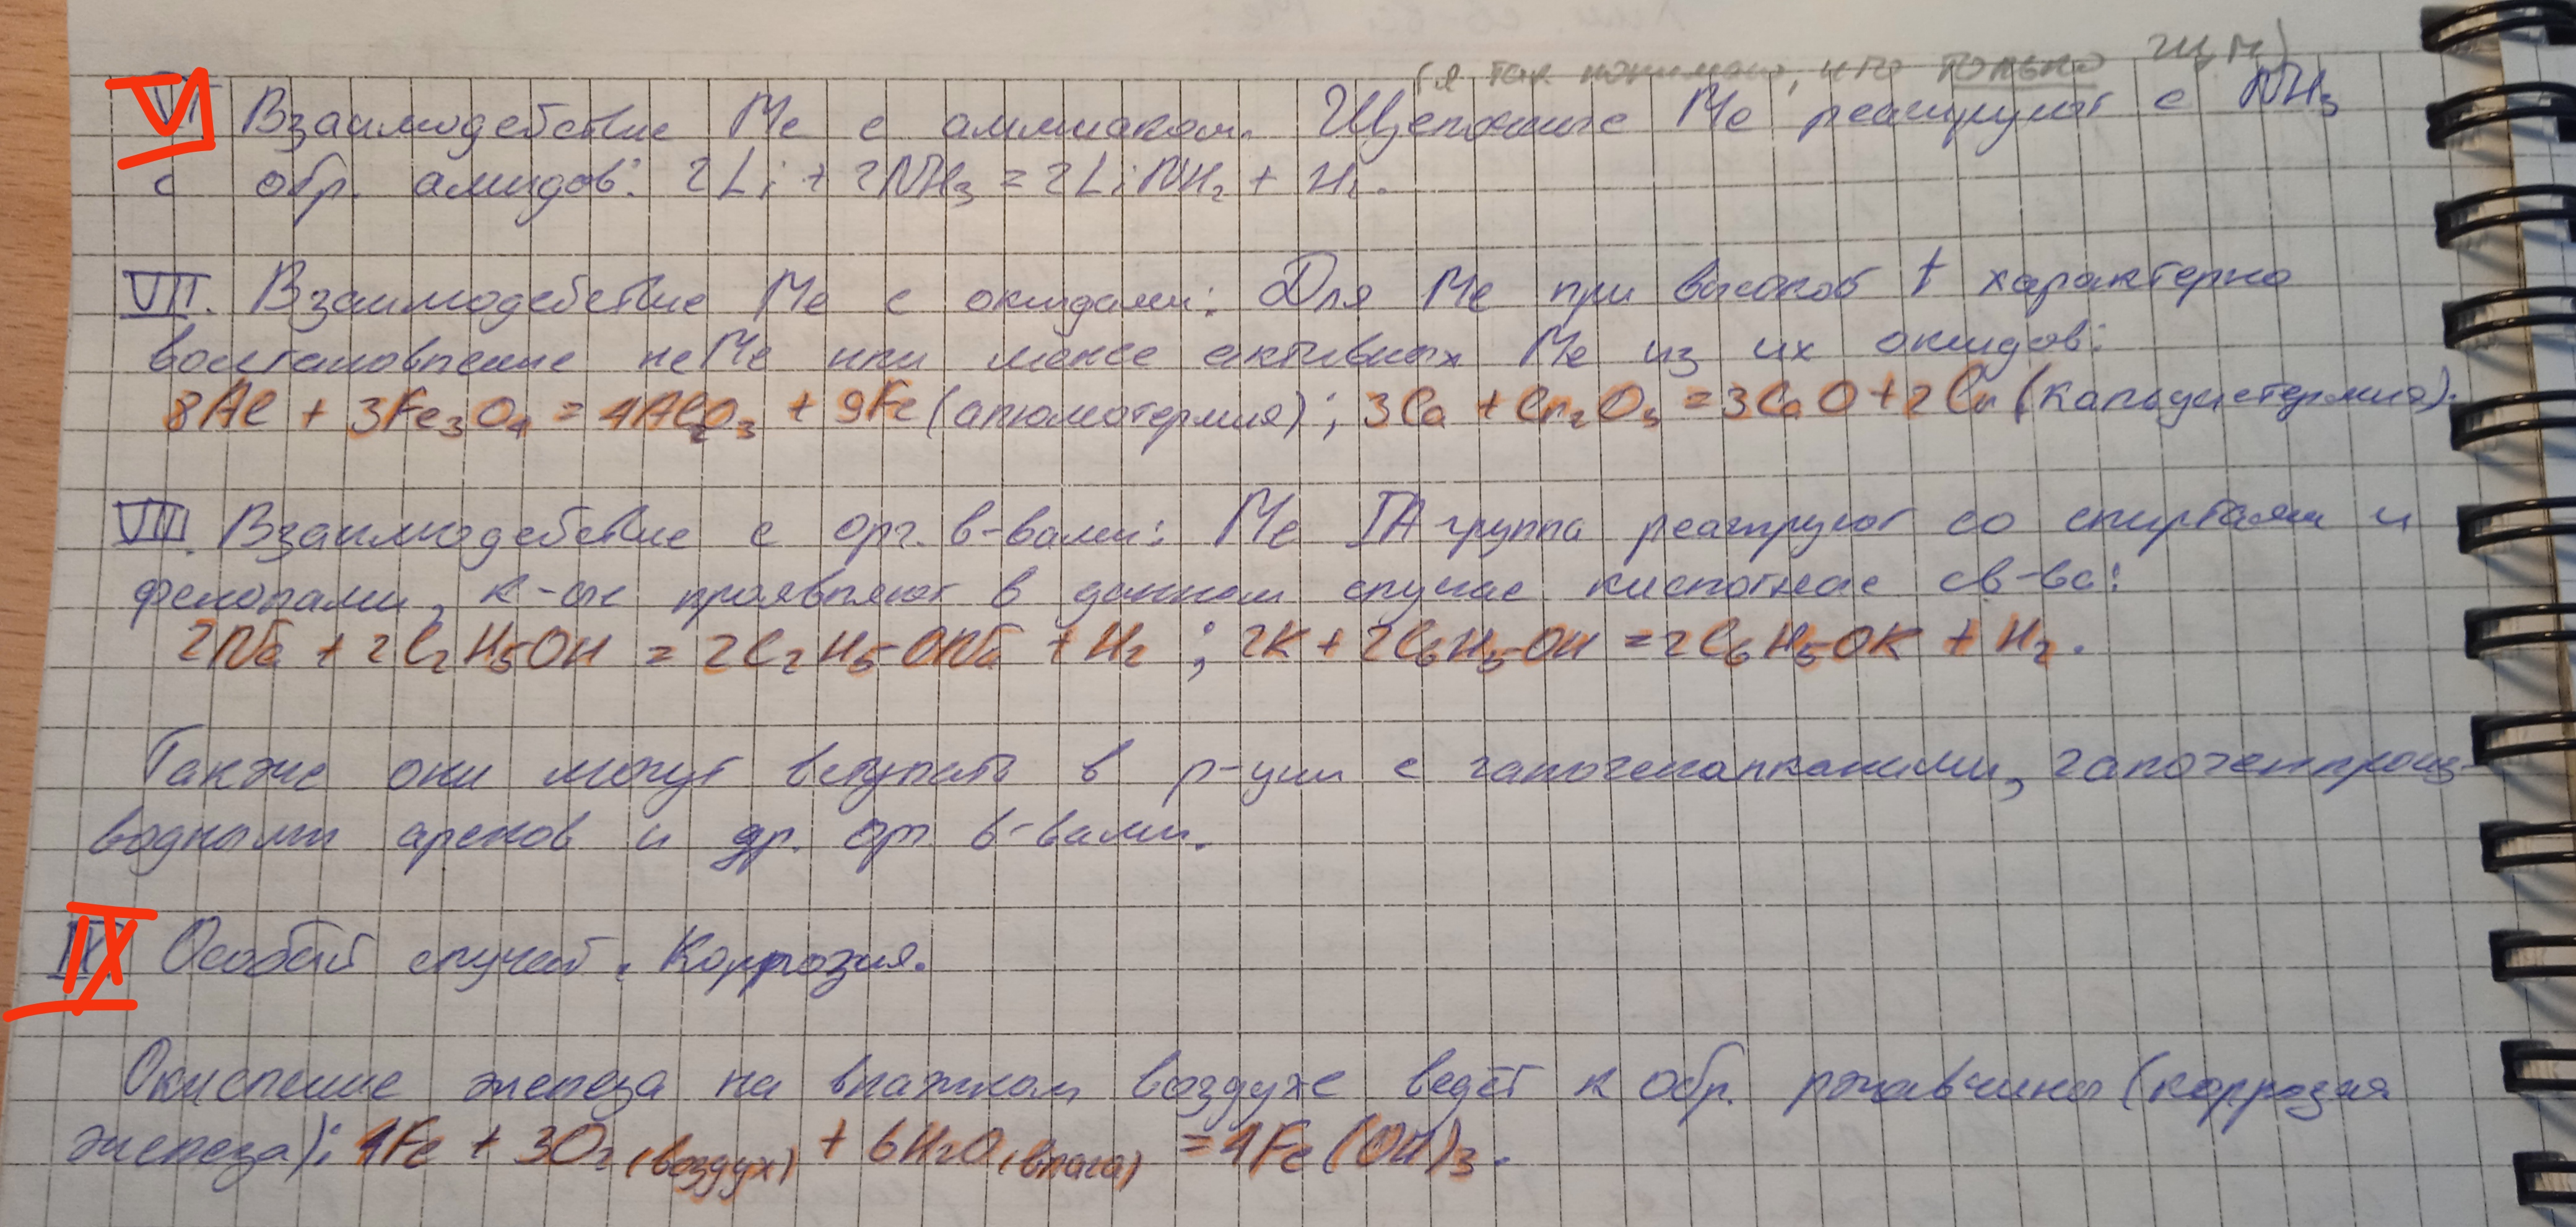 (я так понимаю, что только ЩМ)
VI Взаимодействие Ме с аммиаком. Щелочные Ме реагируют с NH₃
с обр. амидов: 2Li + 2NH₃ = 2LiNH₂ + H₂.
VII. Взаимодействие Ме с оксидами: Для Ме при высокой t характерно
восстановление неМе или менее активных Ме из их оксидов:
8Al + 3Fe₃O₄ = 4Al₂O₃ + 9Fe (алюмотермия); 3Ca + Cr₂O₃ = 3CaO + 2Cr (кальциетермия).
VIII. Взаимодействие с орг. в-вами: Ме IA группа реагируют со спиртами и
фенолами, к-ые проявляют в данном случае кислотные св-ва:
2Na + 2C₂H₅OH = 2C₂H₅ONa + H₂ ; 2K + 2C₆H₅OH = 2C₆H₅OK + H₂.
Также они могут вступать в р-ции с галогеналканами, галогенпроиз-
водными аренов и др. орг. в-вами.
IX Особый случай. Коррозия.
Окисление железа на влажном воздухе ведёт к обр. ржавчины (коррозия
железа): 4Fe + 3O₂ (воздух) + 6H₂O (влага) = 4Fe(OH)₃.